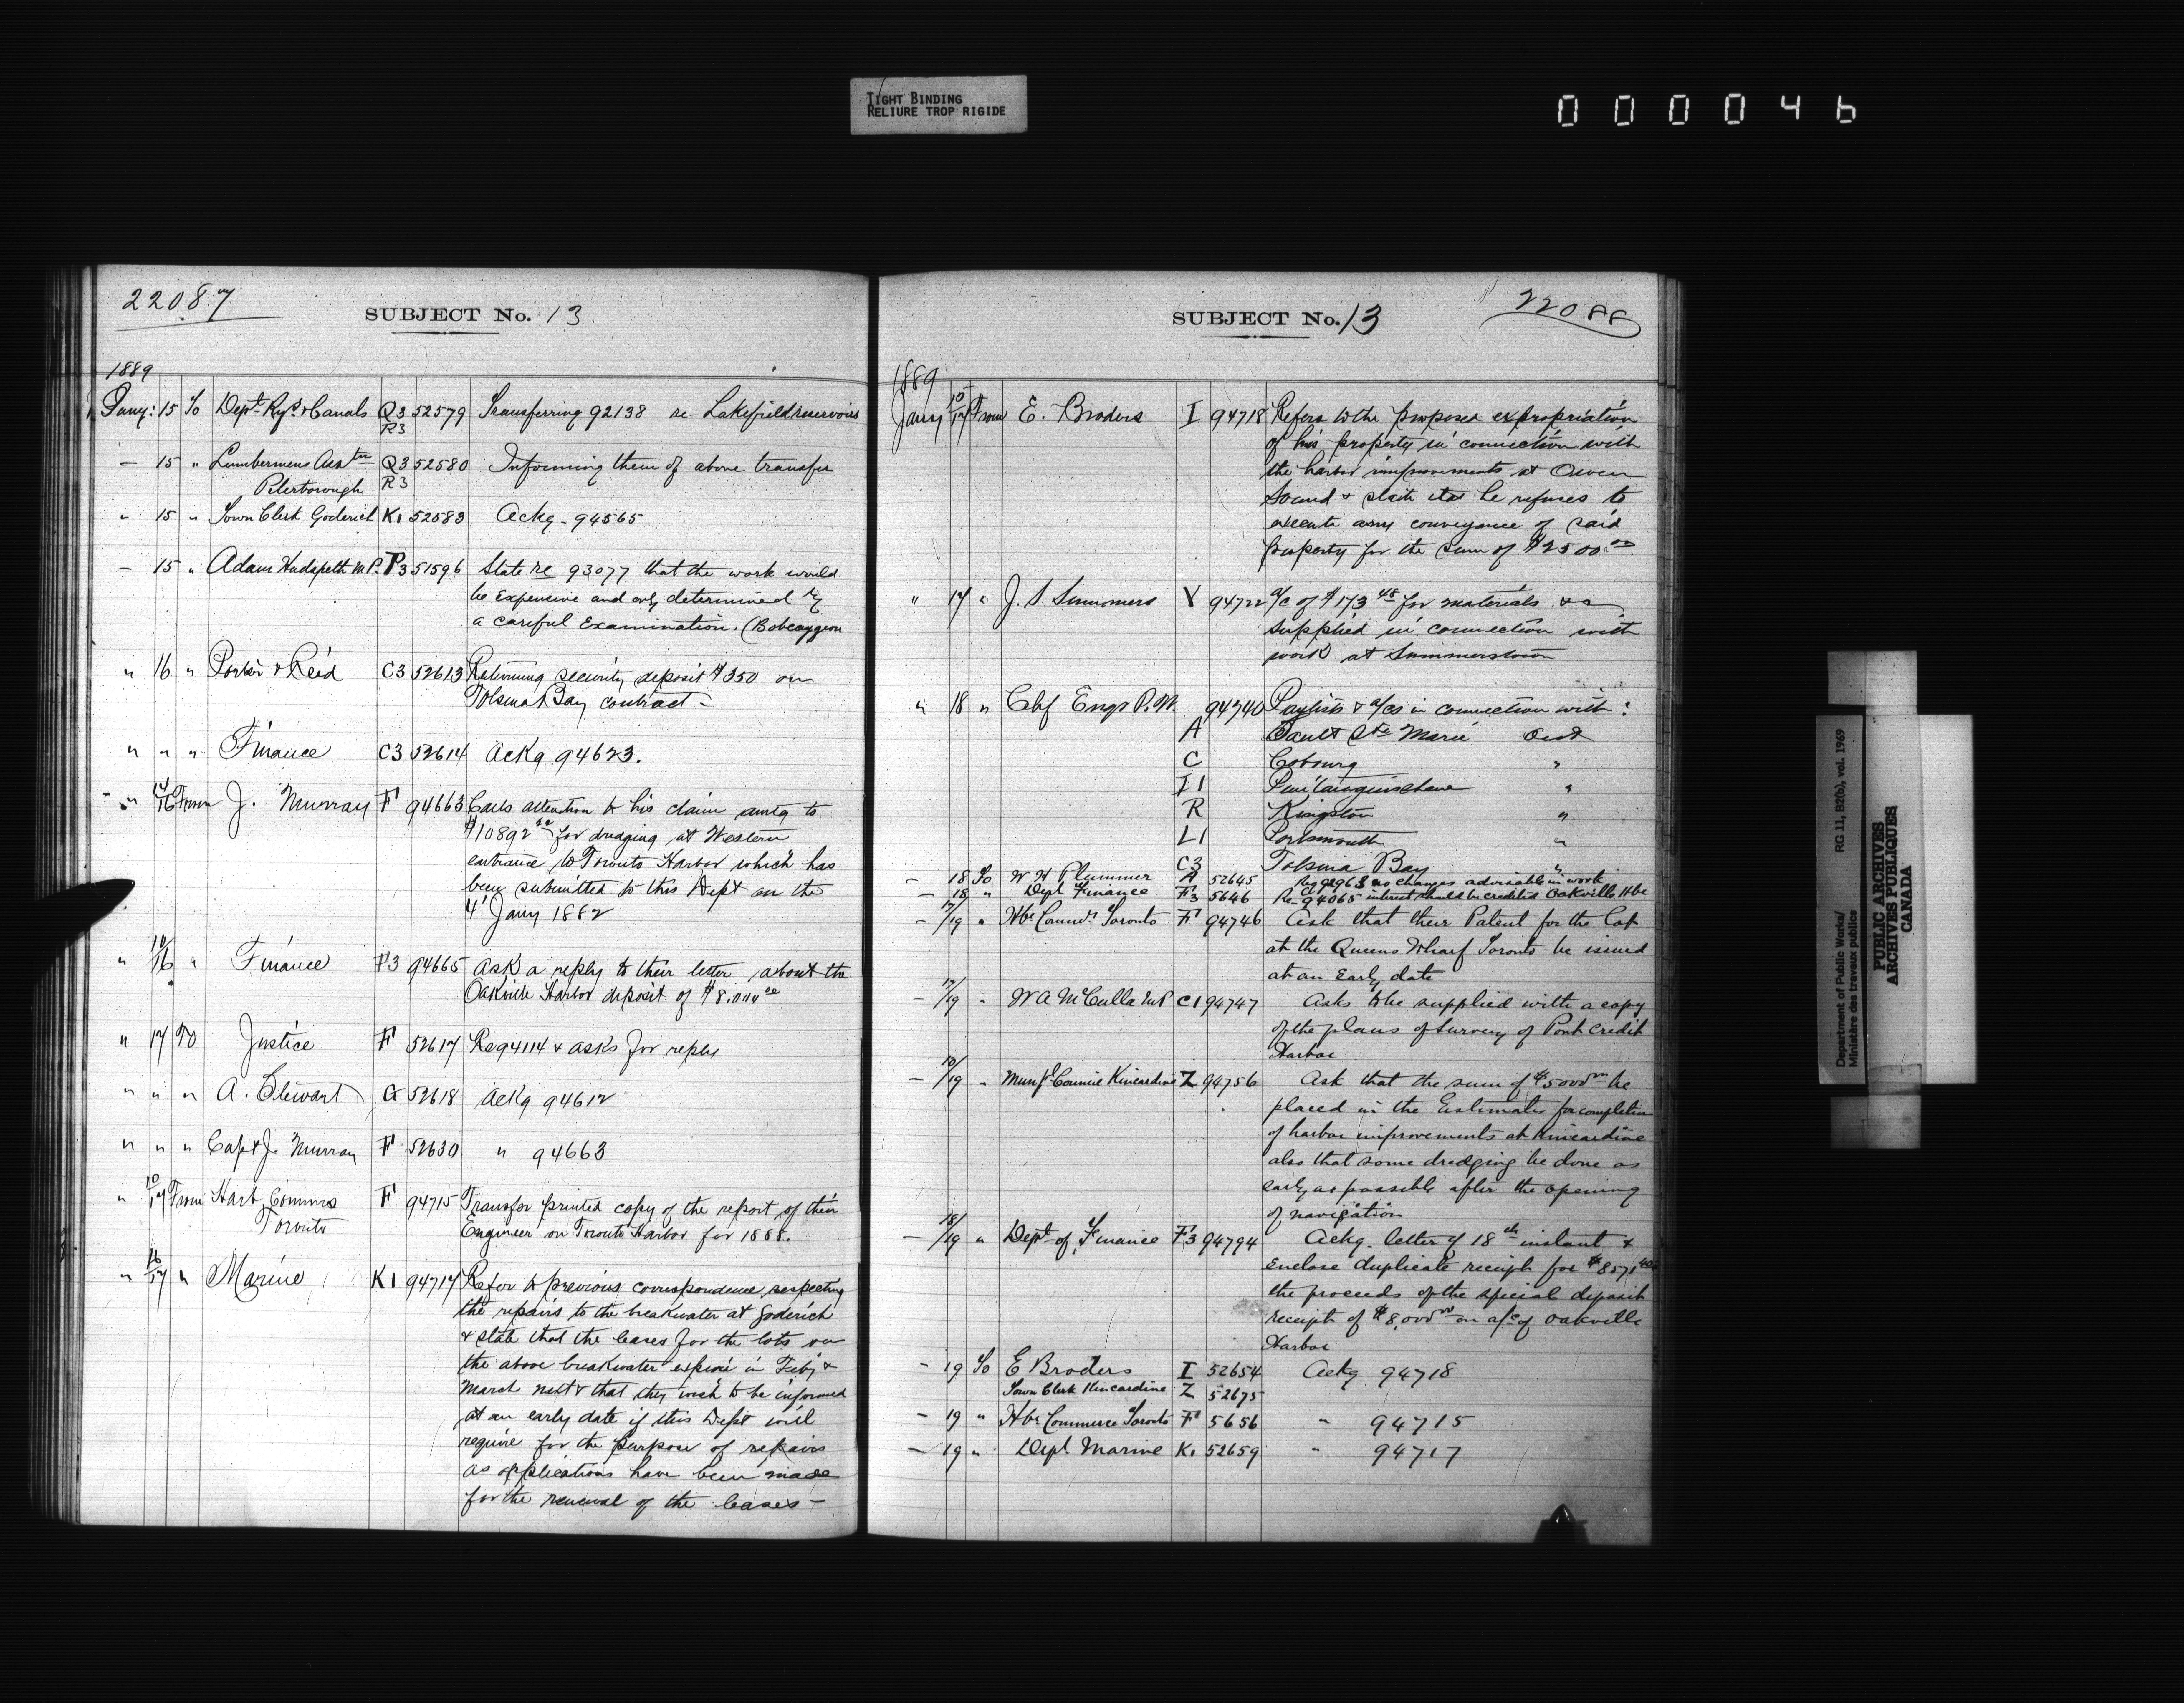 TIGHT BINDING
RELIURE TROP RIGIDE
000046
22087
SUBJECT No. 13
1889
Jany: 15 To Dept. Rys & Canals Q3 52579 Transferring 92138 re Lakefield reservoirs
R3
— 15 " Lumbermens Asstn Q3 52580 Informing them of above transfer
Peterborough R3
" 15 " Town Clerk Goderich K1 52583 Ackg - 94565
— 15 " Adam Hudspeth M.P. P3 51596 State re 93077 that the work would
be expensive and only determined by
a careful examination. (Bobcaygeon
" 16 " Porter & Reid C3 52613 Returning security deposit $350 on
Tolsma Bay contract -
" " " Finance C3 52614 Ackg 94623.
" 14/16 From J. Murray F 94663 Calls attention to his claim amtg to
$10892 for dredging at Western
entrance to Toronto Harbor which has
been submitted to this Dept on the
4 Jany 1882
" 14/16 " Finance F3 94665 Ask a reply to their letter about the
Oakville Harbor deposit of $8.000 00
" 17 To Justice F 52617 Re 94114 & asks for reply
" " " A. Stewart G 52618 Ackg 94612
" " " Capt J. Murray F 52630 " 94663
" 10/17 From Harb. Commrs F 94715 Transfer printed copy of the report of their
Toronto Engineer on Toronto Harbor for 1888.
" 16/17 " Marine K1 94717 Refer to previous correspondence respecting
the repairs to the breakwater at Goderich
& state that the leases for the lots on
the above breakwater expire in Feby &
March next & that they wish to be informed
at an early date if this Dept will
require for the purpose of repairs
as applications have been made
for the renewal of the leases -
SUBJECT No. 13
22088
1889
Jany 15/17 From E. Broders I 94718 Refers to the proposed expropriation
of his property in connection with
the harbor improvements at Owen
Sound & state that he refuses to
execute any conveyance of said
property for the sum of $2500.00
" 17 " J. S. Summers Y 94722 a/c of $173 48 for materials &c
supplied in connection with
work at Summerstown
" 18 " Chf Engr P.W. 94740 Paylists & a/cs in connection with:
A Sault Ste Marie Ont
C Cobourg "
I1 Penetanguishene "
R Kingston "
L1 Portsmouth "
C3 Tolsma Bay "
— 18 To W H Plummer A 52645 no changes advisable in work
— 18 " Dept Finance F3 5646 Re 94065 interest should be credited Oakville Hbr
— 17/19 " Hbr Commrs Toronto F 94746 Ask that their Patent for the Lot
at the Queens Wharf Toronto be issued
at an early date
— 17/19 " W A McCulla M.P C1 94747 Asks to be supplied with a copy
of the plans of survey of Port Credit
Harbor
— 10/19 " Munpl Council Kincardine Z 94756 Ask that the sum of $5000 00 be
placed in the Estimates for completion
of harbor improvements at Kincardine
also that some dredging be done as
early as possible after the opening
of navigation
— 18/19 " Dept of Finance F3 94794 Ackg. letter of 18th instant &
enclose duplicate receipt for
the proceeds of the special deposit
receipt of $8,000 00 on a/c of Oakville
Harbor
— 19 To E Broders I 52654 Ackg 94718
Town Clerk Kincardine Z 52675
— 19 " Hbr Commerce Toronto F 5656 " 94715
— 19 " Dept. Marine K1 52659 " 94717
Department of Public Works/ RG 11, B2(b), vol. 1969
Ministère des travaux publics
PUBLIC ARCHIVES
ARCHIVES PUBLIQUES
CANADA